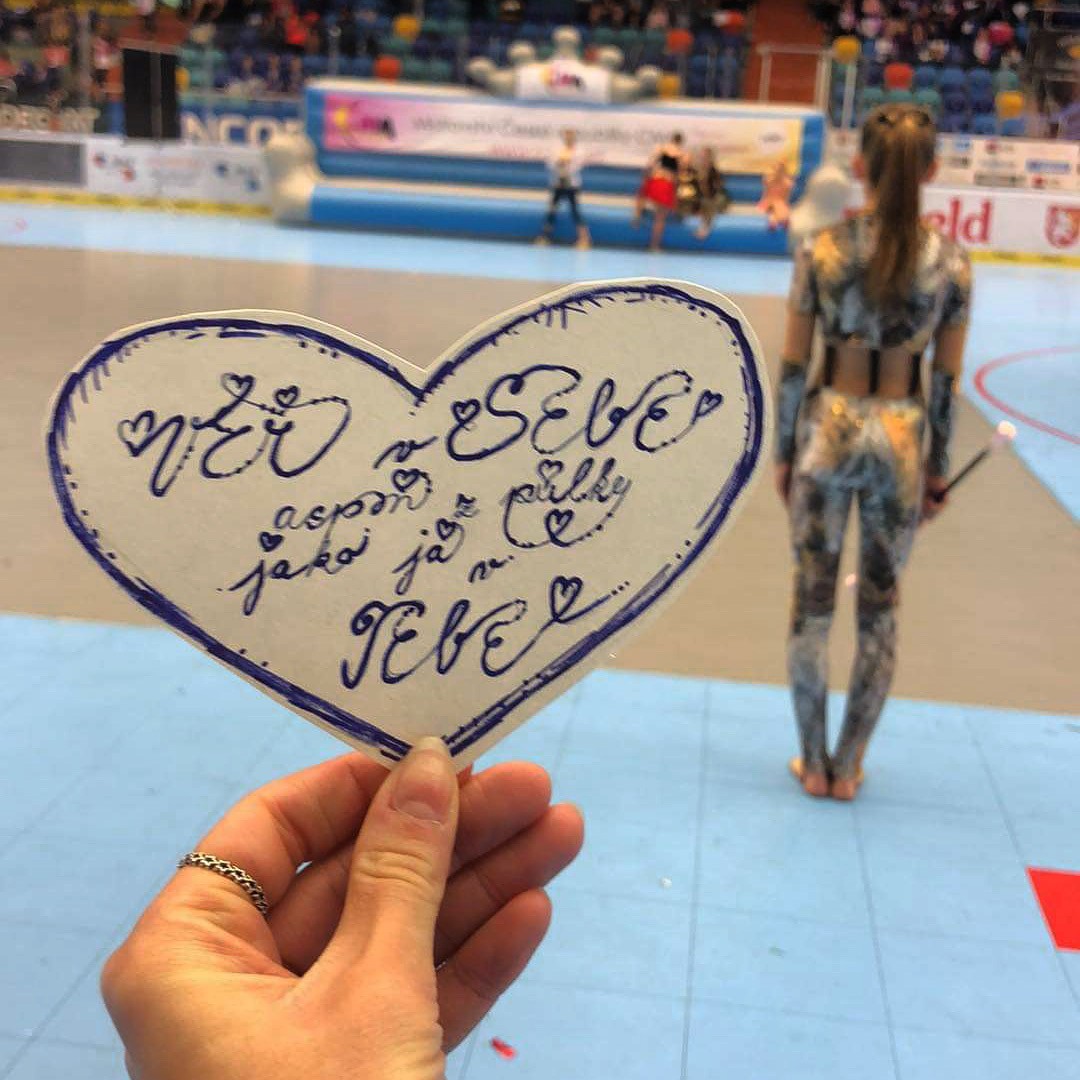 NCOR
eld
VĚŘ v SEBE
aspoň z půlky
jako já v
TEBE